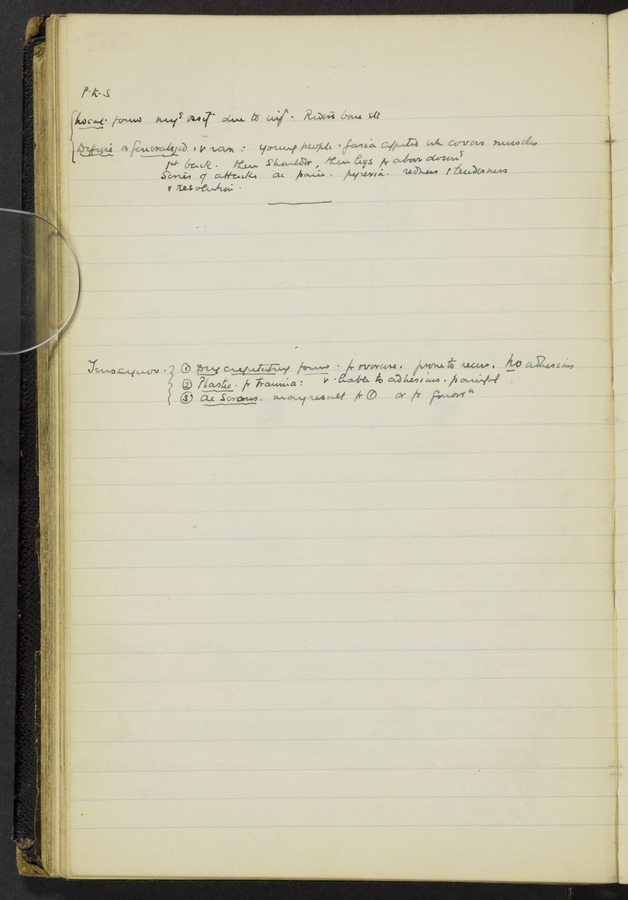 P.K.S
Local. form myos ossif due to inf - Riders bone etc
Diffuse or generalized. v rare: young people. fascia affected wh covers muscles
1st back. then shoulder, then legs fr above down
Series of attacks ac pain. pyrexia. redness & tenderness
v resolution.
Tenosynov. ① Dry crepitating form. fr overuse. prone to recur. No adhesions
② Plastic. fr trauma: v. liable to adhesions. painful.
③ Ac Serous. may result fr ① or fr Gonorr